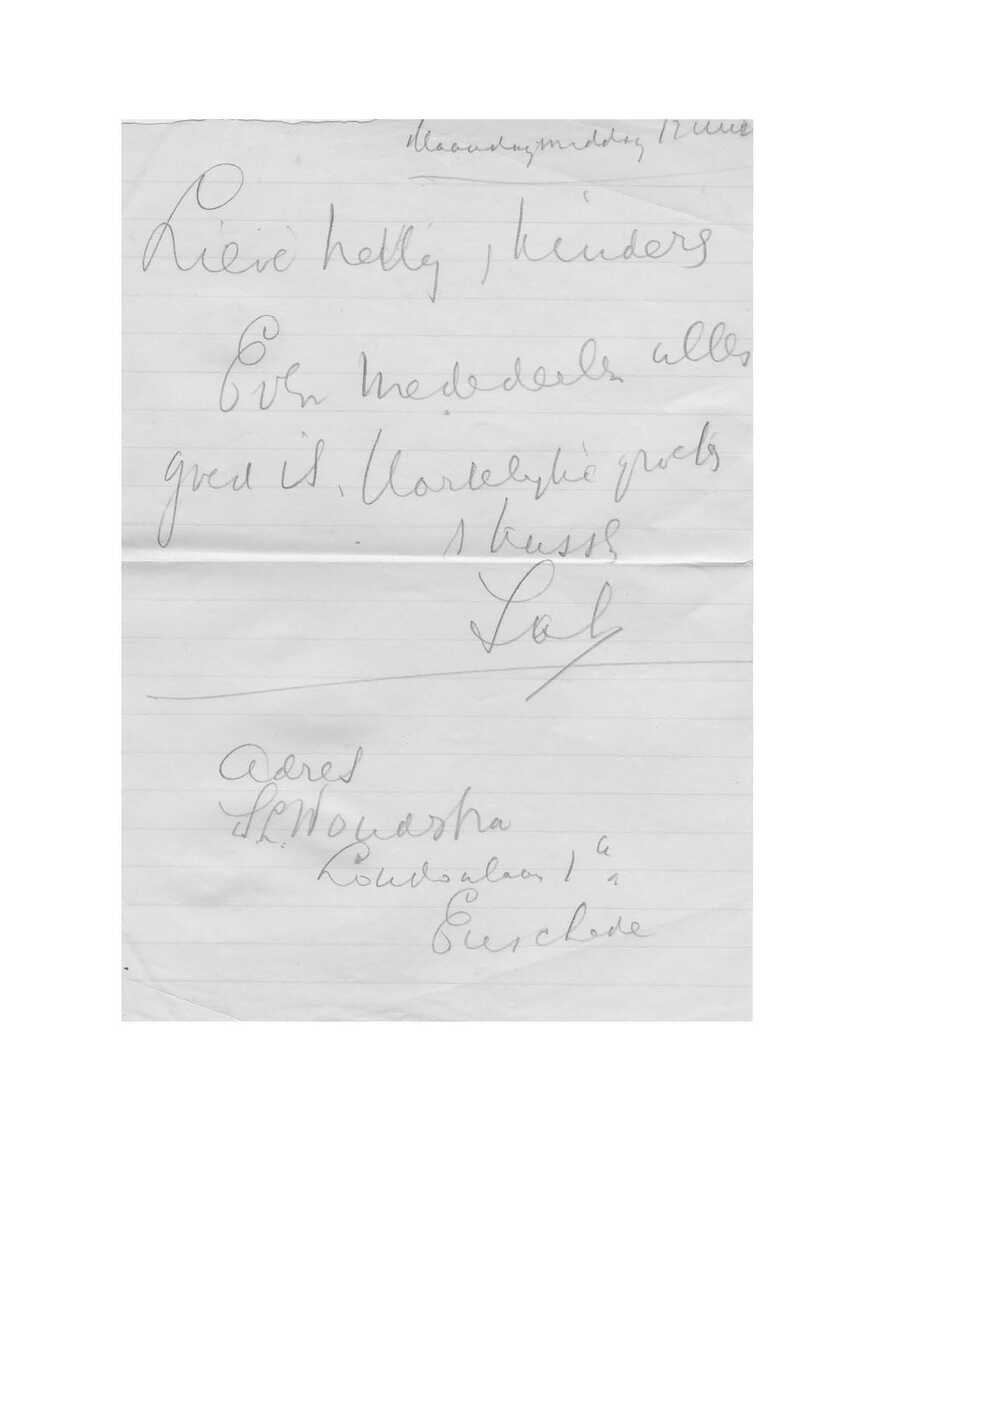 Maandagmiddag 12 uur
Lieve Netty, kinders
Even mededeelen alles
goed is. Hartelyke groets
s kussen
Jab
Adres
Woudstra
Loudonlaan 1
Enschede